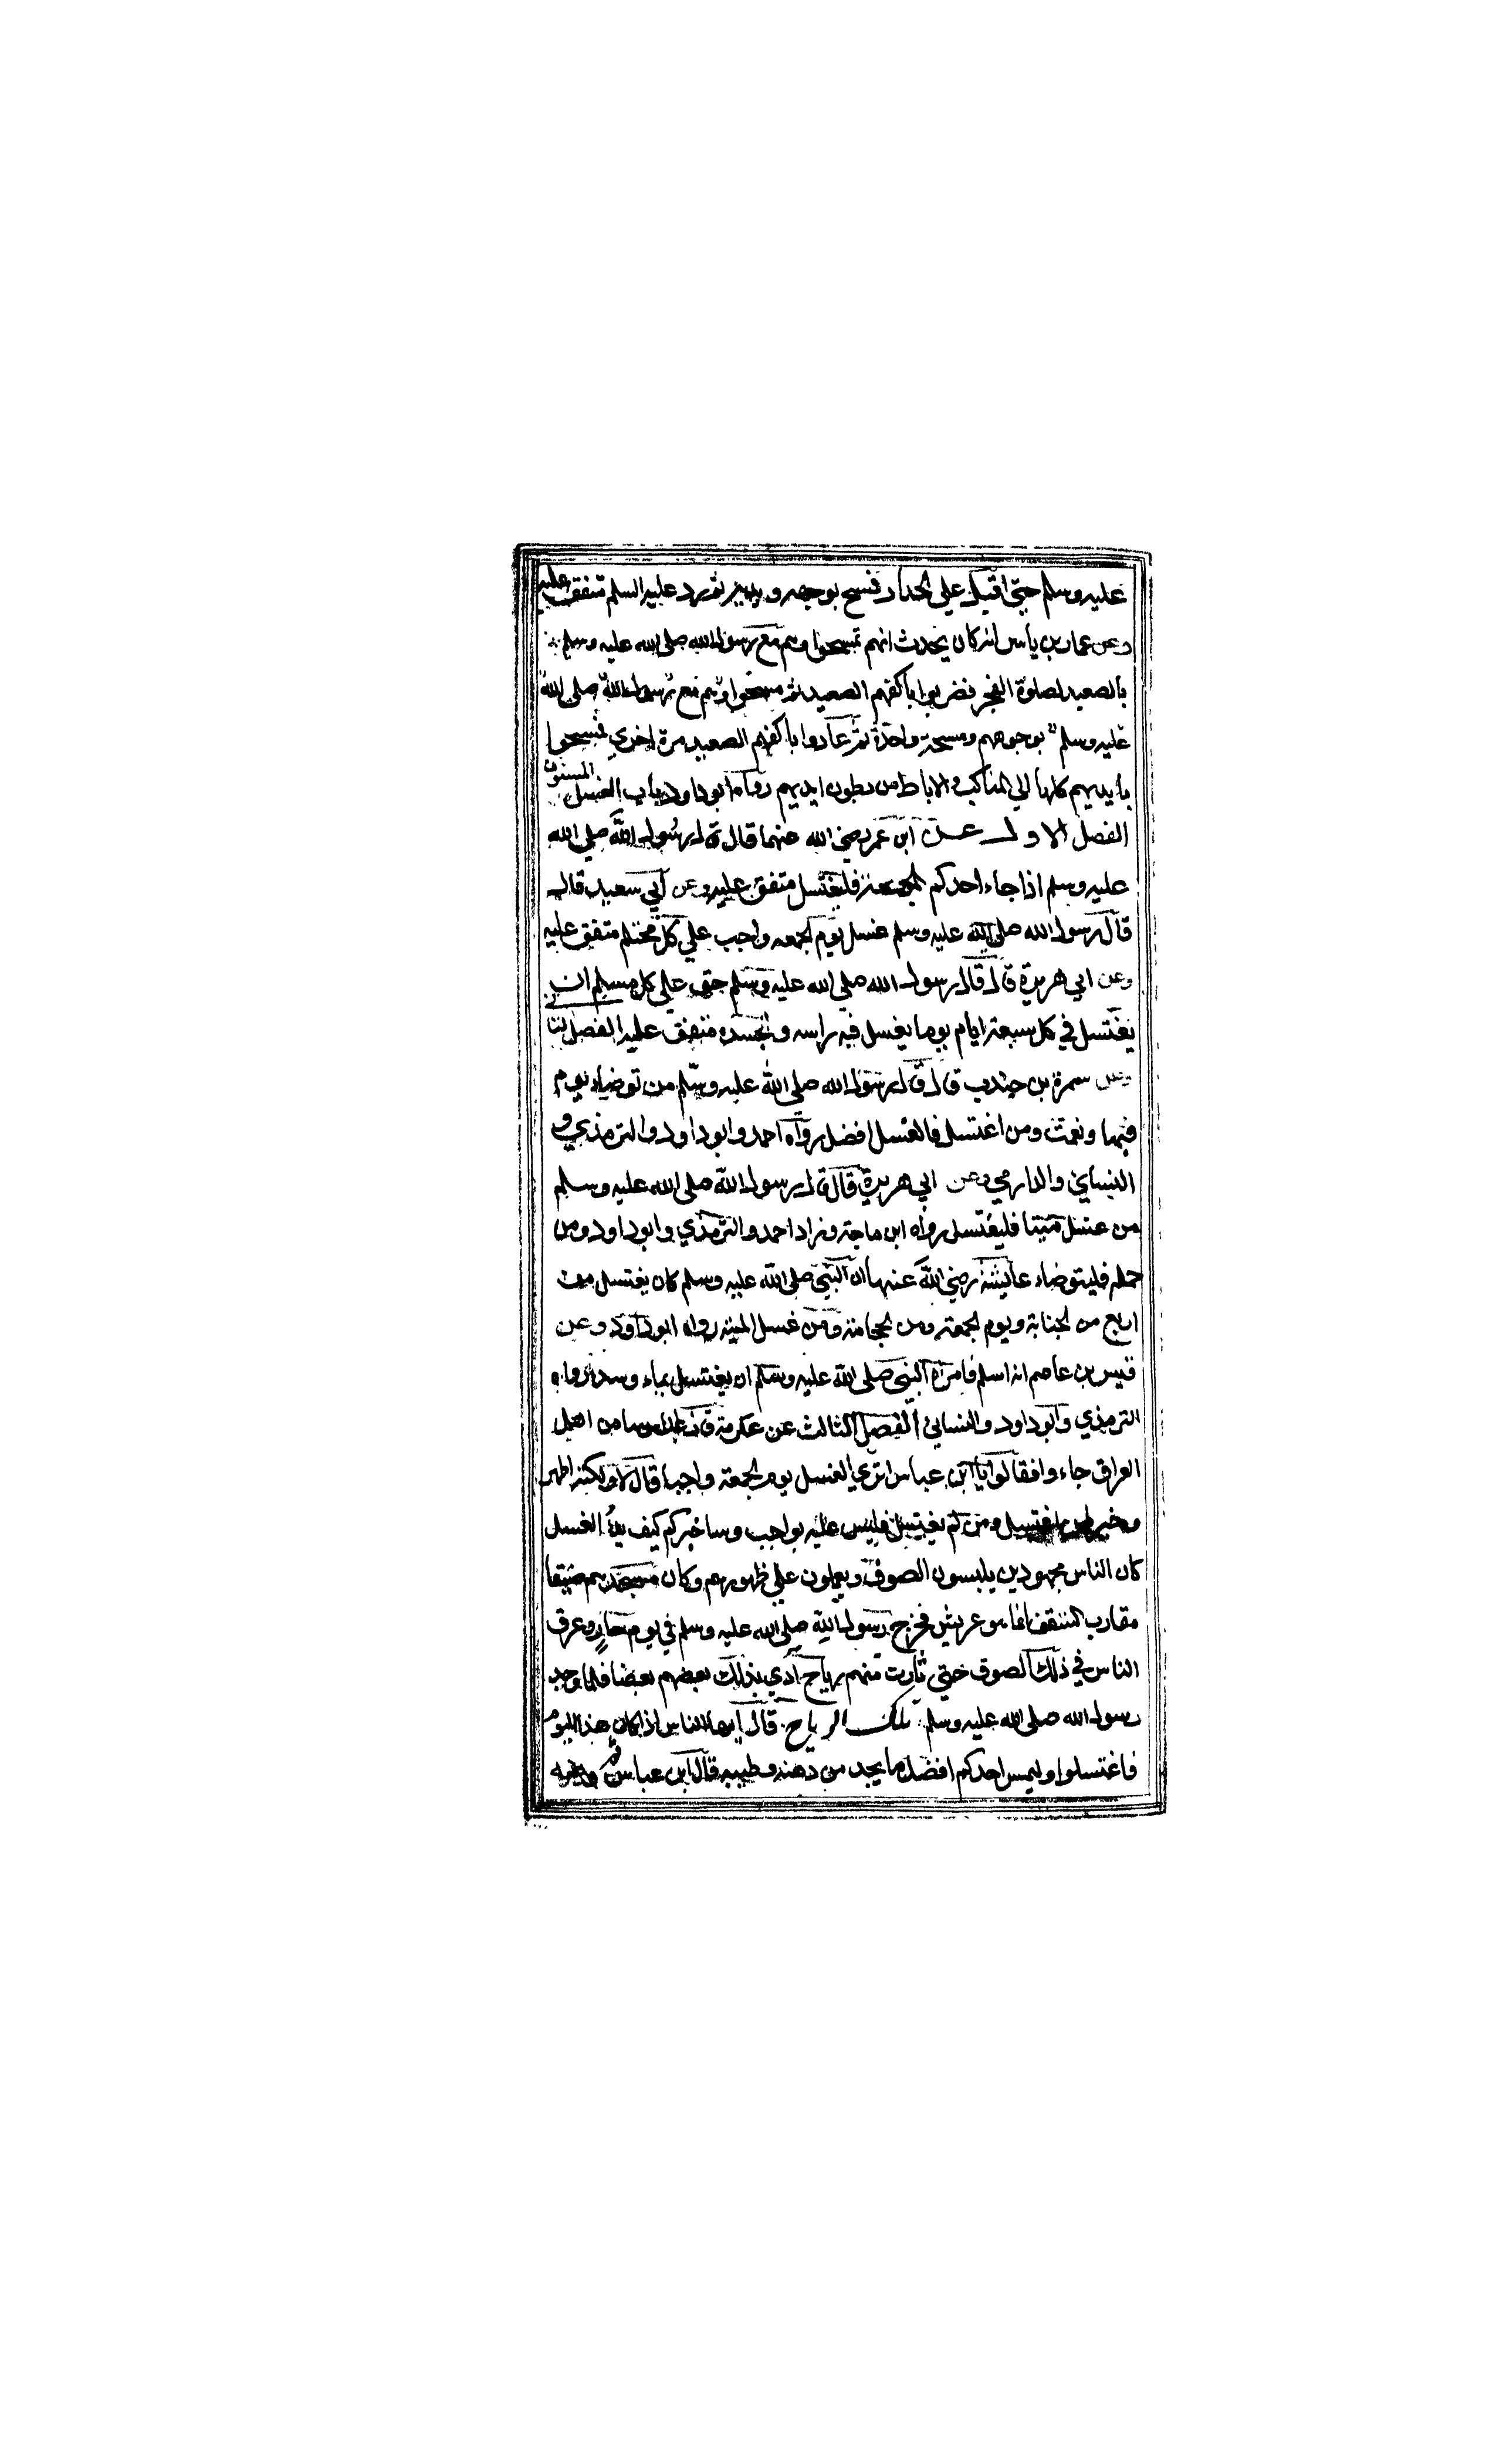 عليه وسلم حتى اقبل علي الجدار فمسح بوجهه ويديه ثم رد عليه السلم متفق عليه
وعن عمار بن ياسر انه كان يحدث انهم تمسحوا وهم مع رسول الله صلى الله عليه وسلم
بالصعيد لصلوة الفجر فضربوا باكفهم الصعيد ثم مسحوا وهم مع رسول الله صلى الله
عليه وسلم بوجوههم ومسحة واحدة ثم عادوا باكفهم الصعيد مرة اخري فمسحوا
بايديهم كلها الي المناكب والاباط من بطون ايديهم رواه ابوداود باب الغسل المسنون
الفصل الاول عن ابن عمر رضي الله عنهما قال قال رسول الله صلي الله
عليه وسلم اذا جاء احدكم الجمعة فليغتسل متفق عليه وعن ابي سعيد قال
قال رسول الله صلى الله عليه وسلم غسل يوم الجمعه واجب علي كل محتلم متفق عليه
وعن ابي هريرة قال قال رسول الله صلي الله عليه وسلم حق علي كل مسلم ان
يغتسل في كل سبعة ايام يوما يغسل فيه راسه وجسده متفق عليه الفصل الثا
وعن سمرة بن جندب قال قال رسول الله صلى الله عليه وسلم من توضاء يوم
فبها ونعمت ومن اغتسل فالغسل افضل رواه احمد وابوداود والترمذي و
النسايي والدارمي وعن ابي هريرة قال قال رسول الله صلى الله عليه وسلم
من غسل ميتا فليغتسل رواه ابن ماجة وزاد احمد والترمذي وابوداود ومن
حمله فليتوضاء عايشة رضي الله عنها ان النبي صلى الله عليه وسلم كان يغتسل من
اربع من الجنابة ويوم الجمعة ومن الحجامة ومن غسل الميت رواه ابوداود وعن
قيس بن عاصم انه اسلم فامره النبي صلى الله عليه وسلم ان يغتسل بماء وسدر رواه
الترمذي وابوداود والنسايي الفصل الثالث عن عكرمة قال ان ناسا من اهل
العراق جاءوا فقالوا يا ابن عباس اتري الغسل يوم الجمعة واجبا قال لا ولكنه اطهر
وخير لمن اغتسل ومن لم يغتسل فليس عليه بواجب وساخبركم كيف بدء الغسل
كان الناس مجهودين يلبسون الصوف ويعملون علي ظهورهم وكان مسجدهم ضيقا
مقارب السقف انما هو عريش فخرج رسول الله صلى الله عليه وسلم في يوم حار وعرق
الناس في ذلك الصوف حتى ثارت منهم رياح اذي بذلك بعضهم بعضا فلما وجد
رسول الله صلى الله عليه وسلم تلك الرياح قال ايها الناس اذا كان هذا اليوم
فاغتسلوا وليمس احدكم افضل ما يجد من دهنه وطيبه قال ابن عباس ثم